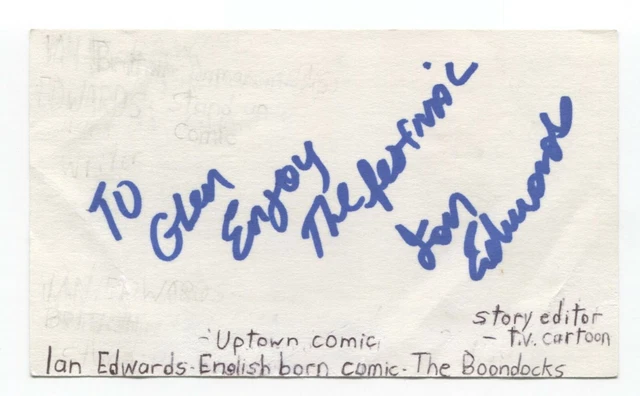 To
Glen
Enjoy
The festival
Ian
Edwards
story editor
- Uptown comic - T.V. cartoon
Ian Edwards - English born comic - The Boondocks